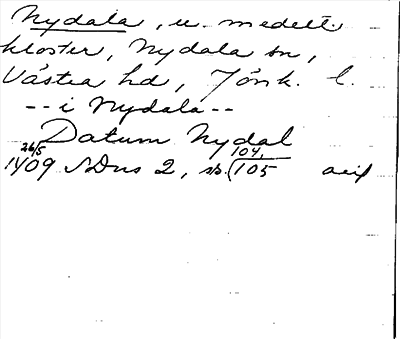 Nydala, u. medelt.
kloster, Nydala sn,
Västra hd, Jönk. l.
-- i Nydala --
Datum Nydal
26/5 104,
1409 SDns 2, s. (105 avs